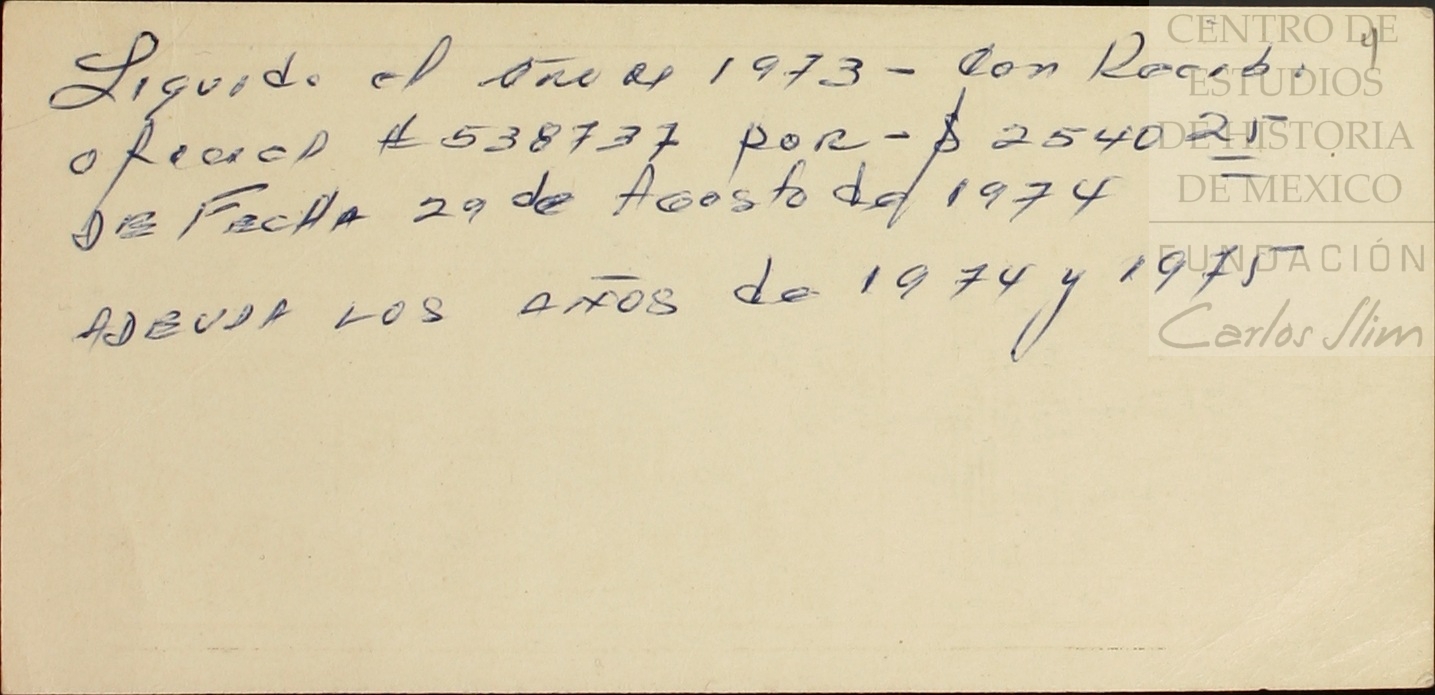 Liquido el año de 1973 - Con Recibo 4
oficial # 538737 por - $ 2540 25
DE FECHA 29 de Agosto de 1974
ADEUDA LOS AÑOS de 1974 y 1975
CENTRO DE
ESTUDIOS
DE HISTORIA
DE MEXICO
FUNDACIÓN
Carlos Slim